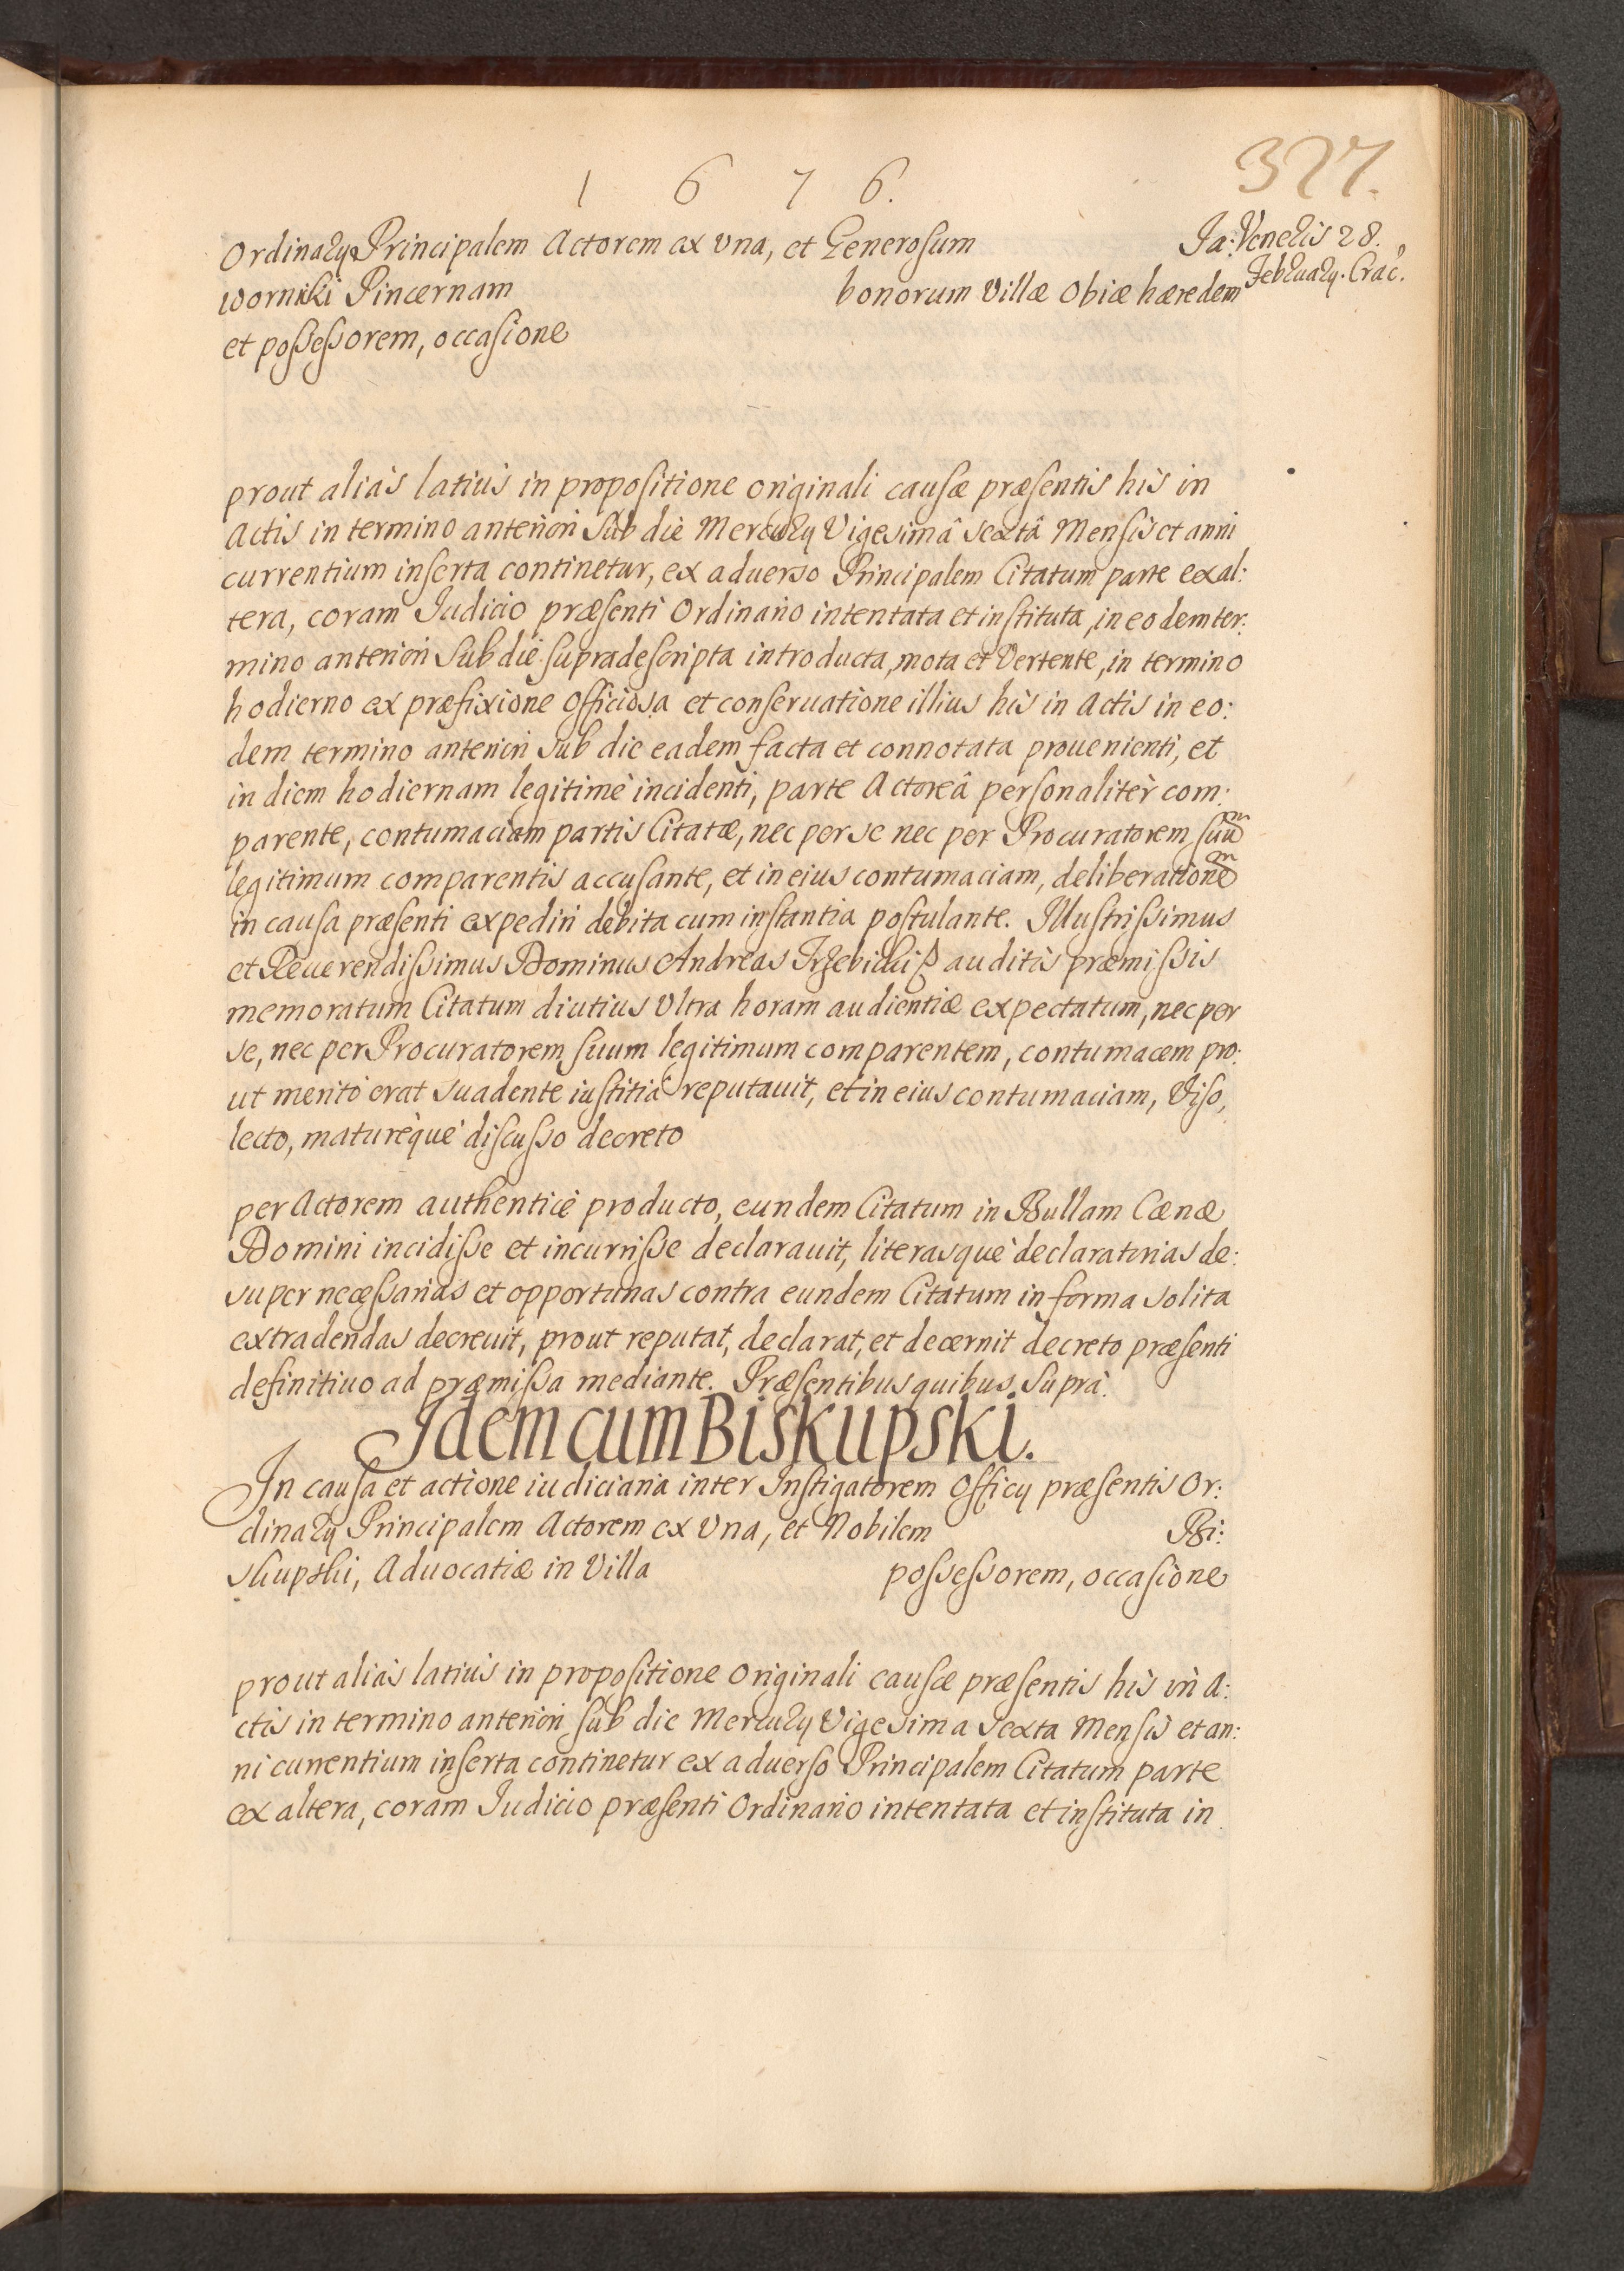 1 6 7 6.
327.
Ordinarÿ Principalem Actorem ex vna, et Generosum Ja:
Veneris 28.
Februarÿ. Crac̃.
wornicki Pincernam bonorum Villæ Obiæ hæredem
et possessorem, occasione
prout aliàs latiùs in propositione originali causæ præsentis hìs in
Actis in termino anteriori sub die Mercurÿ Vigesimâ sextâ Mensis et anni
currentium inserta continetur, ex aduerso Principalem Citatum parte ex al:
tera, coram Iudicio præsenti Ordinario intentata et instituta, in eodem ter:
mino anteriori sub die supradescripta introducta, mota et Vertente, in termino
hodierno ex præfixione Officiosa et conseruatione illius hìs in Actis in eo:
dem termino anteriori sub die eadem facta et connotata prouenienti, et
in diem hodiernam legitimè incidenti, parte Actoreâ personalitèr com:
parente, contumaciam partis Citatæ, nec per se nec per Procuratorem suuᵐ
legitimum comparentis accusante, et in eius contumaciam, deliberationeᵐ
in causa præsenti expediri debita cum instantia postulante. Illustrissimus
et Reuerendissimus Dominus Andreas Trzebicki ß auditis præmissis
memoratum Citatum diutius Vltra horam audientiæ expectatum, nec per
se, nec per Procuratorem suum legitimum comparentem, contumacem pro:
ut meritò erat suadente iustitiâ reputauit, et in eius contumaciam, Viso,
lecto, maturèque discusso decreto
per Actorem authenticè producto, eundem Citatum in Bullam Cænæ
Domini incidisse et incurrisse declarauit, literasque declaratorias de:
super necessarias et opportunas contra eundem Citatum in forma solita
extradendas decreuit, prout reputat, declarat, et decernit decreto præsenti
definitiuo ad præmissa mediante. Præsentibus quibus suprà.
Idem cum Biskupski.
In causa et actione iudiciaria inter Instigatorem Officÿ præsentis Or:
dinarÿ Principalem Actorem ex Vna, et Nobilem Bi:
skupski, Aduocatiæ in Villa possessorem, occasione
prout aliàs latiùs in propositione originali causæ præsentis hìs in A:
ctis in termino anteriori sub die Mercurÿ Vigesima sexta Mensis et an:
ni currentium inserta continetur ex aduerso Principalem Citatum parte
ex altera, coram Iudicio præsenti Ordinario intentata et instituta in